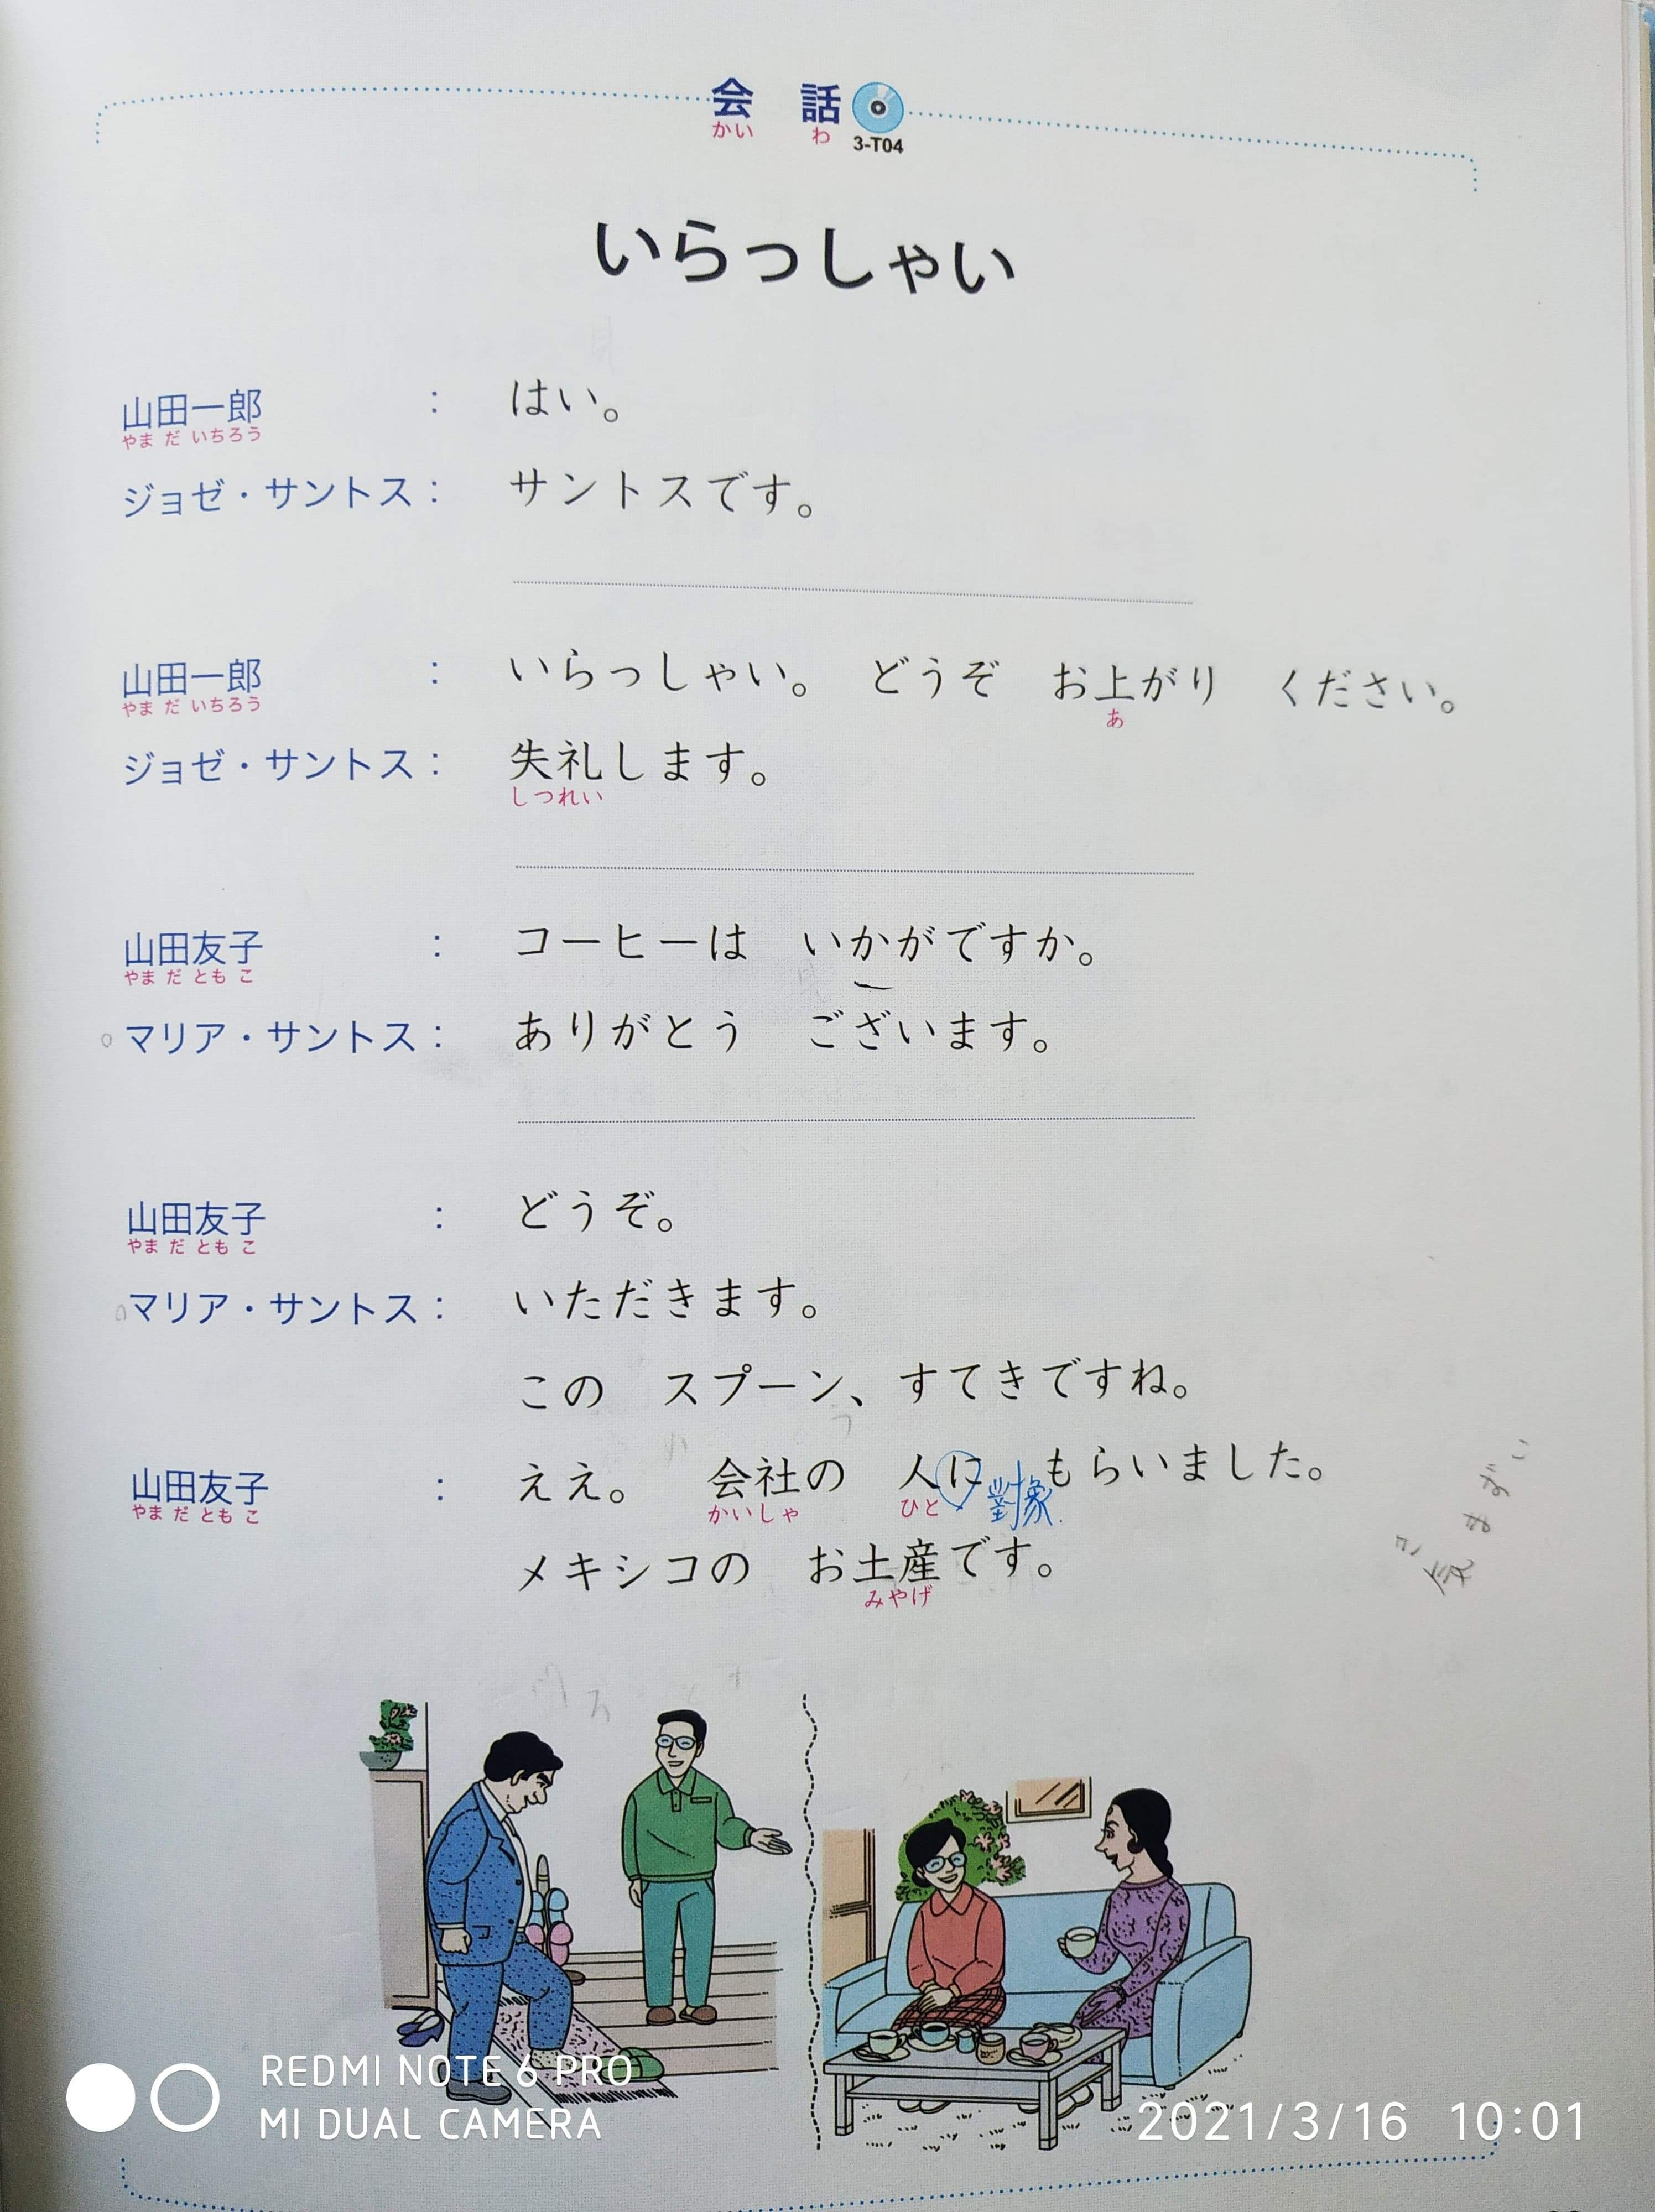 会 話
かい わ
3-T04
いらっしゃい
山田一郎 : はい。
やま だ いちろう
ジョゼ・サントス : サントスです。
山田一郎 : いらっしゃい。 どうぞ お上がり ください。
やま だ いちろう あ
ジョゼ・サントス : 失礼します。
しつれい
山田友子 : コーヒーは いかがですか。
やま だ とも こ
マリア・サントス : ありがとう ございます。
山田友子 : どうぞ。
やま だ とも こ
マリア・サントス : いただきます。
この スプーン、すてきですね。
山田友子 : ええ。 会社の 人に 對象 もらいました。
やま だ とも こ かいしゃ ひと
メキシコの お土産です。
みやげ
REDMI NOTE 6 PRO
MI DUAL CAMERA
2021/3/16 10:01